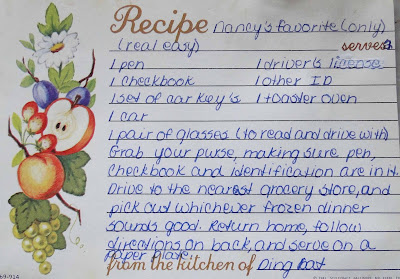 Recipe Nancy's favorite (only)
(real easy) serves 1
1 pen 1 driver's license
1 checkbook 1 other ID
1 set of car key's 1 toaster oven
1 car
1 pair of glasses (to read and drive with)
Grab your purse, making sure pen,
Checkbook and identification are in it.
Drive to the nearest grocery store, and
pick out whichever frozen dinner
sounds good. Return home, follow
directions on back, and serve on a
paper plate.
from the kitchen of Ding Bat
69-914